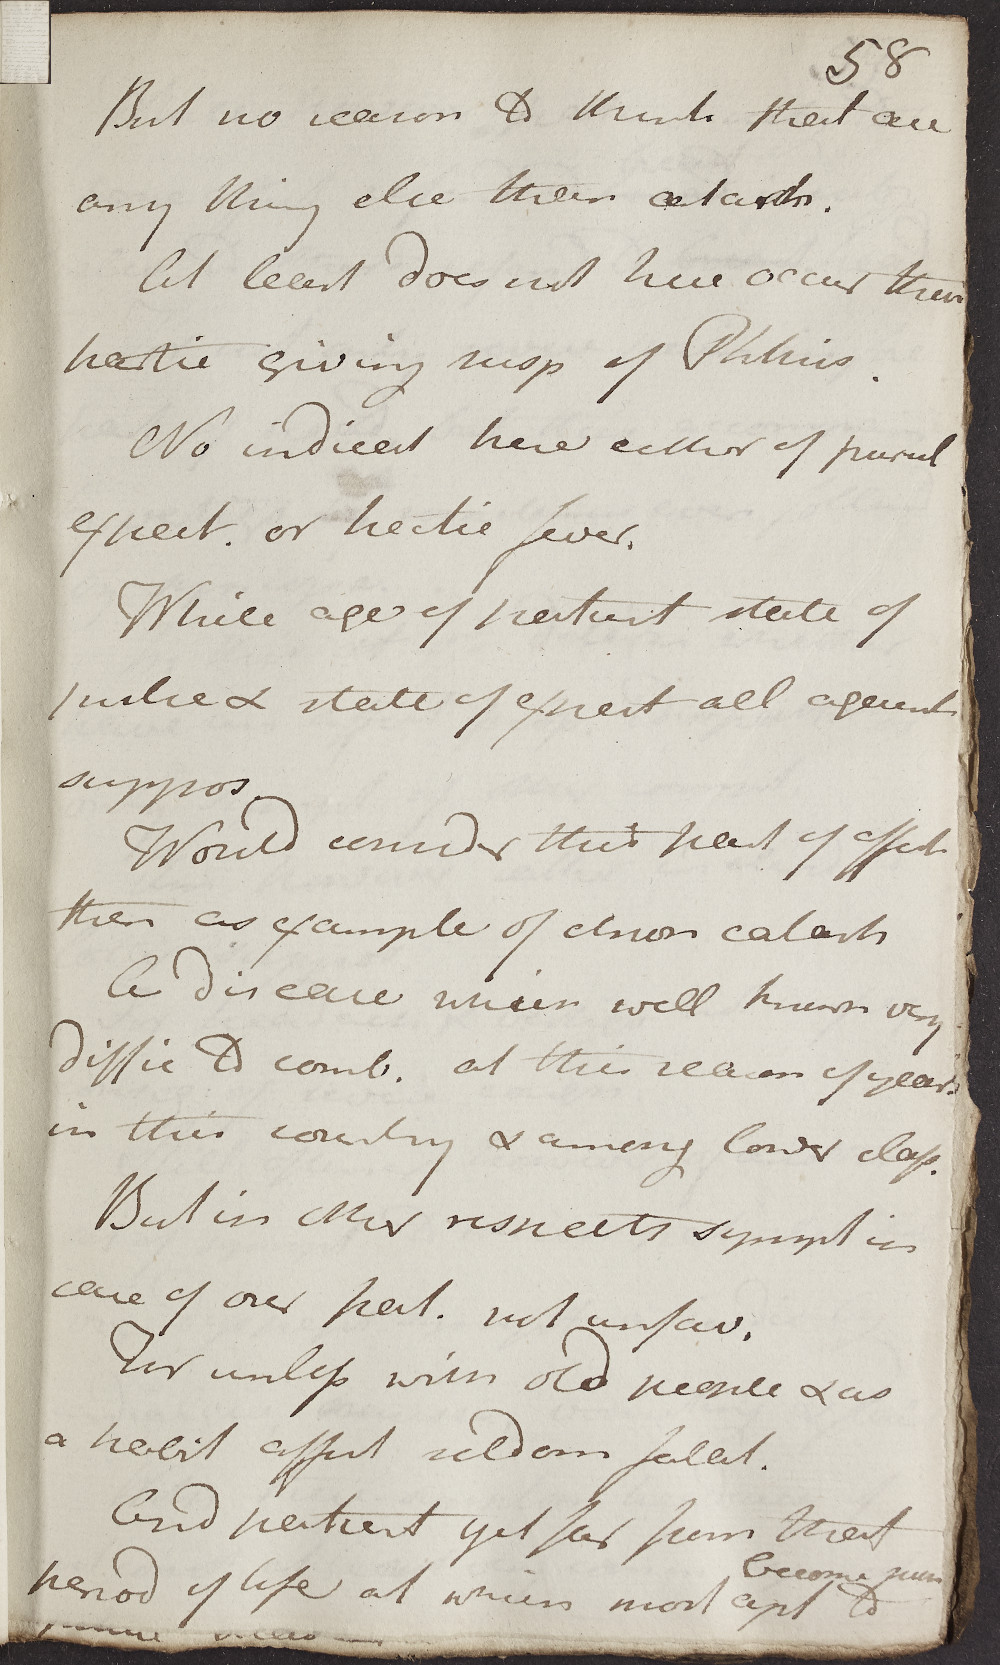 58
But no reason to think that are
any thing else then catarrh.
At least does not here occur then
hectic giving susp of Phthisis.
No indicat here either of purul
expect. or hectic fever.
While age of patient state of
pulse & state of expect all agreeab
suppos.
Would consider this part of affect
then as example of chron catarrh
A disease which well known very
diffic to comb. at this season of year
in this country & among lower class.
But in other respects sympt in
case of our pat. not unfav.
For unless with old people & as
a habit affect seldom fatal.
And patient yet far from that
become
period of life at which most apt to